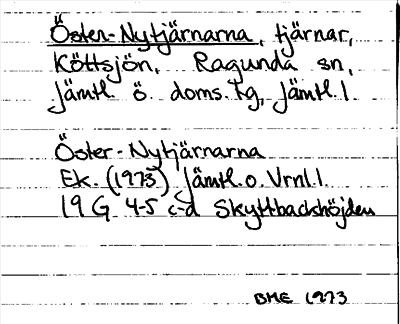 Öster-Nytjärnarna, tjärnar,
Köttsjön, Ragunda sn,
Jämtl ö doms.tg, Jämtl. l.
Öster-Nytjärnarna
Ek. (1973) Jämtl. o. Vrnl. l.
19 G 4-5 c-d Skyttbackhöjden
BME 1973